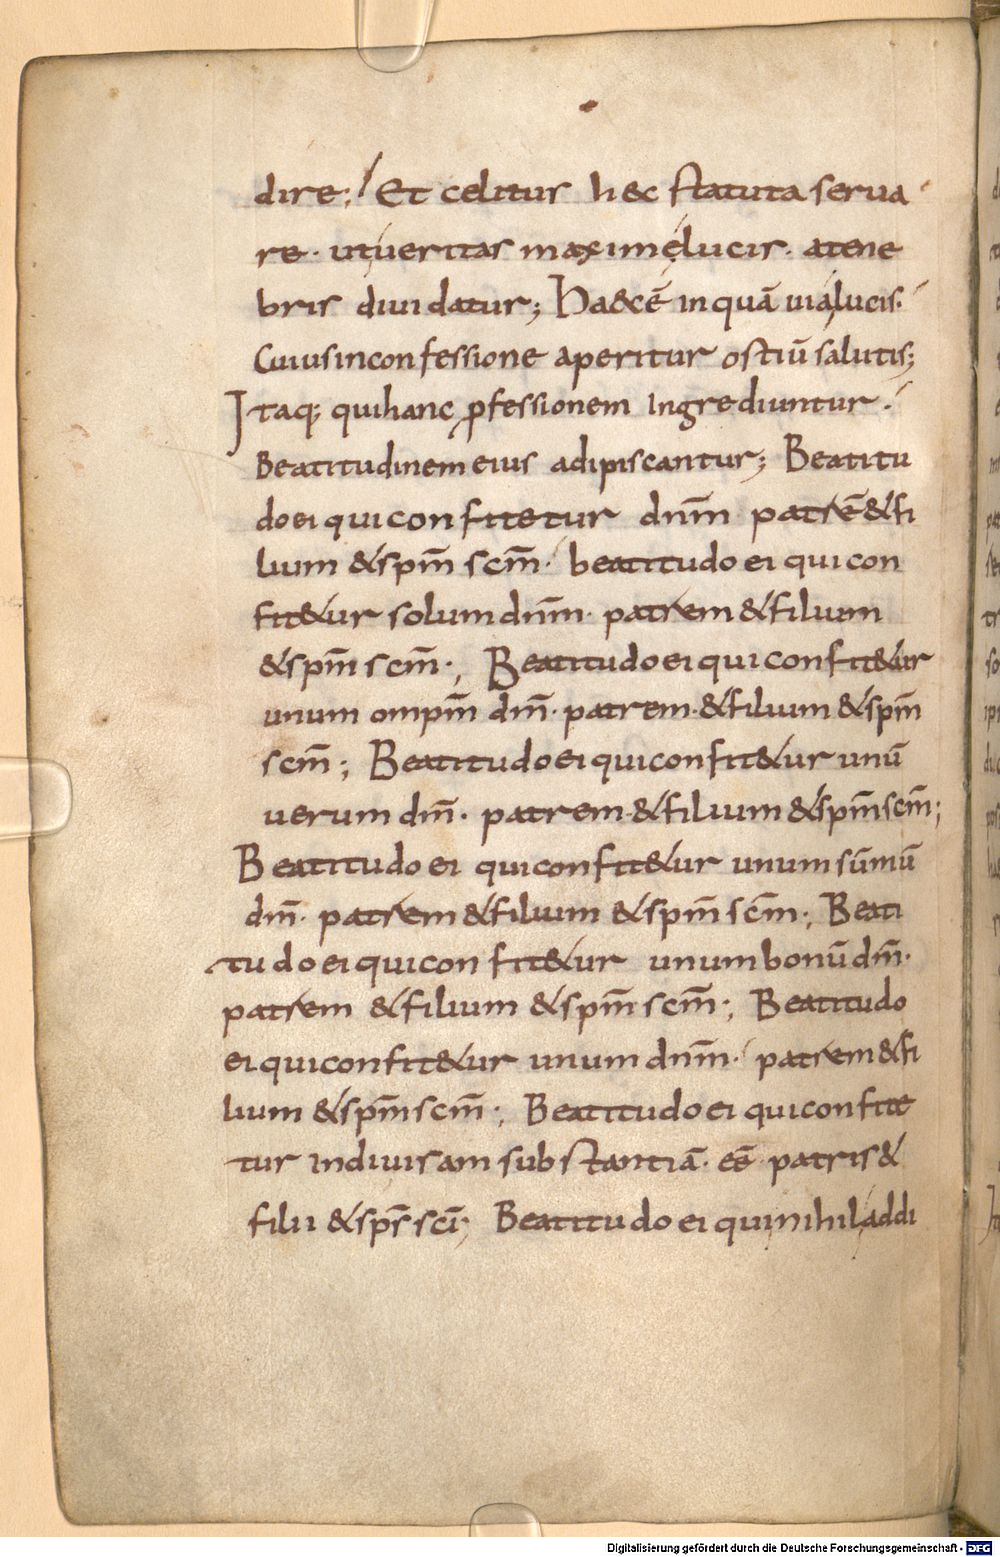 dire; Et celitur hec statuta serua
re · ut ueritas maxime lucis · a tene
bris diuidatur; Haec ē in quā uia lucis ·
Cuius in confessione aperitur ostiū salutis;
Itaq; qui hanc ꝓfessionem Ingrediuntur ·
Beatitudinem eius adipiscantur; Beatitu
do ei qui confitetur dn̄m patrē & fi
lium & sp̄m sc̄m · beatitudo ei qui con
fit&ur solum dn̄m · patrem & filium
& sp̄m sc̄m ·; Beatitudo ei qui confit&ur
unum omp̄m dm̄ · patrem · & filium & sp̄m
sc̄m ; Beatitudo ei qui confit&ur unū
uerum dm̄ · patrem · & filium & sp̄m sc̄m ;
Beatitudo ei qui confit&ur unum sūmū
dm̄ · patrem & filium & sp̄m sc̄m ·; Beati
tudo ei qui confit&ur unum bonū dm̄ ·
patrem & filium & sp̄m sc̄m ·; Beatitudo
ei qui confit&ur unum dn̄m · patrem & fi
lium & sp̄m sc̄m ·; Beatitudo ei qui confite
tur Indiuisam substantiā · eē patris &
filii & sp̄s sc̄i; Beatitudo ei qui nihil addi
Digitalisierung gefördert durch die Deutsche Forschungsgemeinschaft - DFG